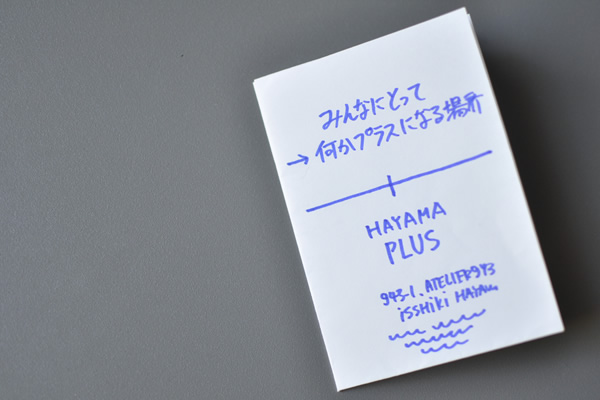 みんなにとって
→ 何かプラスになる場所
HAYAMA
PLUS
943-1, ATELIER943
ISSHIKI HAYAMA